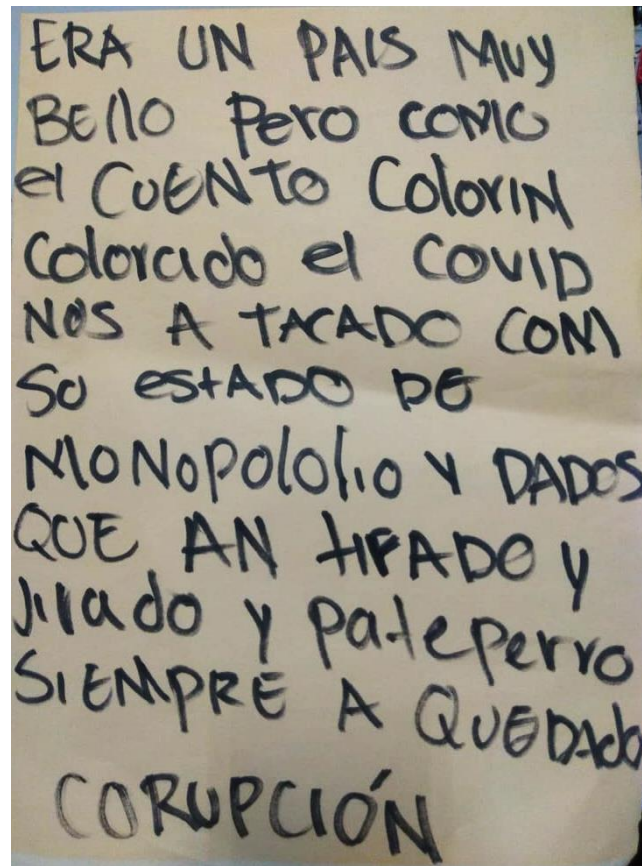 ERA UN PAIS MUY
BEllO PerO COMO
el CUENTO ColoriN
Colorado el COVID
NOS A TACADO CON
SU estADO DE
MONOPOlOlio Y DADOS
QUE AN tiRADO y
Jirado y pateperro
SIEMPRE A QUEDAdo
CORUPCIÓN